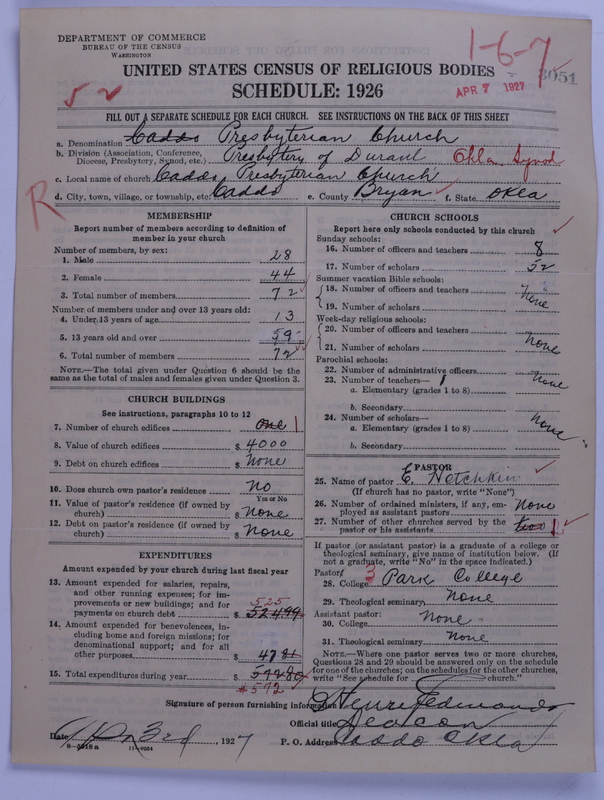 DEPARTMENT OF COMMERCE
BUREAU OF THE CENSUS
WASHINGTON
1-6-7
3051
APR 7 1927
UNITED STATES CENSUS OF RELIGIOUS BODIES
SCHEDULE: 1926
52
FILL OUT A SEPARATE SCHEDULE FOR EACH CHURCH. SEE INSTRUCTIONS ON THE BACK OF THIS SHEET
a. Denomination Caddo Presbyterian Church
b. Division (Association, Conference, Diocese, Presbytery, Synod, etc.) Presbytery of Durant Okla Synod
c. Local name of church Caddo Presbyterian Church
d. City, town, village, or township, etc. Caddo e. County Bryan f. State Okla
R
MEMBERSHIP
Report number of members according to definition of
member in your church
Number of members, by sex:
1. Male 28
2. Female 44
3. Total number of members 72
Number of members under and over 13 years old:
4. Under 13 years of age 13
5. 13 years old and over 59
6. Total number of members 72
NOTE.—The total given under Question 6 should be
same as the total of males and females given under Question 3.
CHURCH BUILDINGS
See instructions, paragraphs 10 to 12
7. Number of church edifices one 1
8. Value of church edifices $ 4000
9. Debt on church edifices $ None
10. Does church own pastor's residence No
Yes or No
11. Value of pastor's residence (if owned by
church) $ None
12. Debt on pastor's residence (if owned by
church) $ None
EXPENDITURES
Amount expended by your church during last fiscal year
13. Amount expended for salaries, repairs,
and other running expenses; for im-
provements or new buildings; and for 525
payments on church debt $ 524.99
14. Amount expended for benevolences, in-
cluding home and foreign missions; for
denominational support; and for all
other purposes $ 4781
15. Total expenditures during year $ 57280
$572
CHURCH SCHOOLS
Report here only schools conducted by this church
Sunday schools:
16. Number of officers and teachers 8
17. Number of scholars 52
Summer vacation Bible schools:
18. Number of officers and teachers None
19. Number of scholars
Week-day religious schools:
20. Number of officers and teachers
21. Number of scholars None
Parochial schools:
22. Number of administrative officers
23. Number of teachers— None
a. Elementary (grades 1 to 8)
b. Secondary
24. Number of scholars— None
a. Elementary (grades 1 to 8)
b. Secondary
PASTOR
25. Name of pastor E. Hotchkin
(If church has no pastor, write "None")
26. Number of ordained ministers, if any, em-
ployed as assistant pastors None
27. Number of other churches served by the
pastor or his assistants 1
If pastor (or assistant pastor) is a graduate of a college or
theological seminary, give name of institution below. (If
not a graduate, write "No" in the space indicated.)
Pastor: 3
28. College Park College
29. Theological seminary None
Assistant pastor:
30. College None
31. Theological seminary None
NOTE.—Where one pastor serves two or more churches,
Questions 28 and 29 should be answered only on the schedule
for one of the churches; on the schedules for the other churches,
write "See schedule for church."
Signature of person furnishing information Henri Edmonds
Official title Deacon
Date 3rd, 1927 P. O. Address Caddo Okla
8—5918a 11—9054